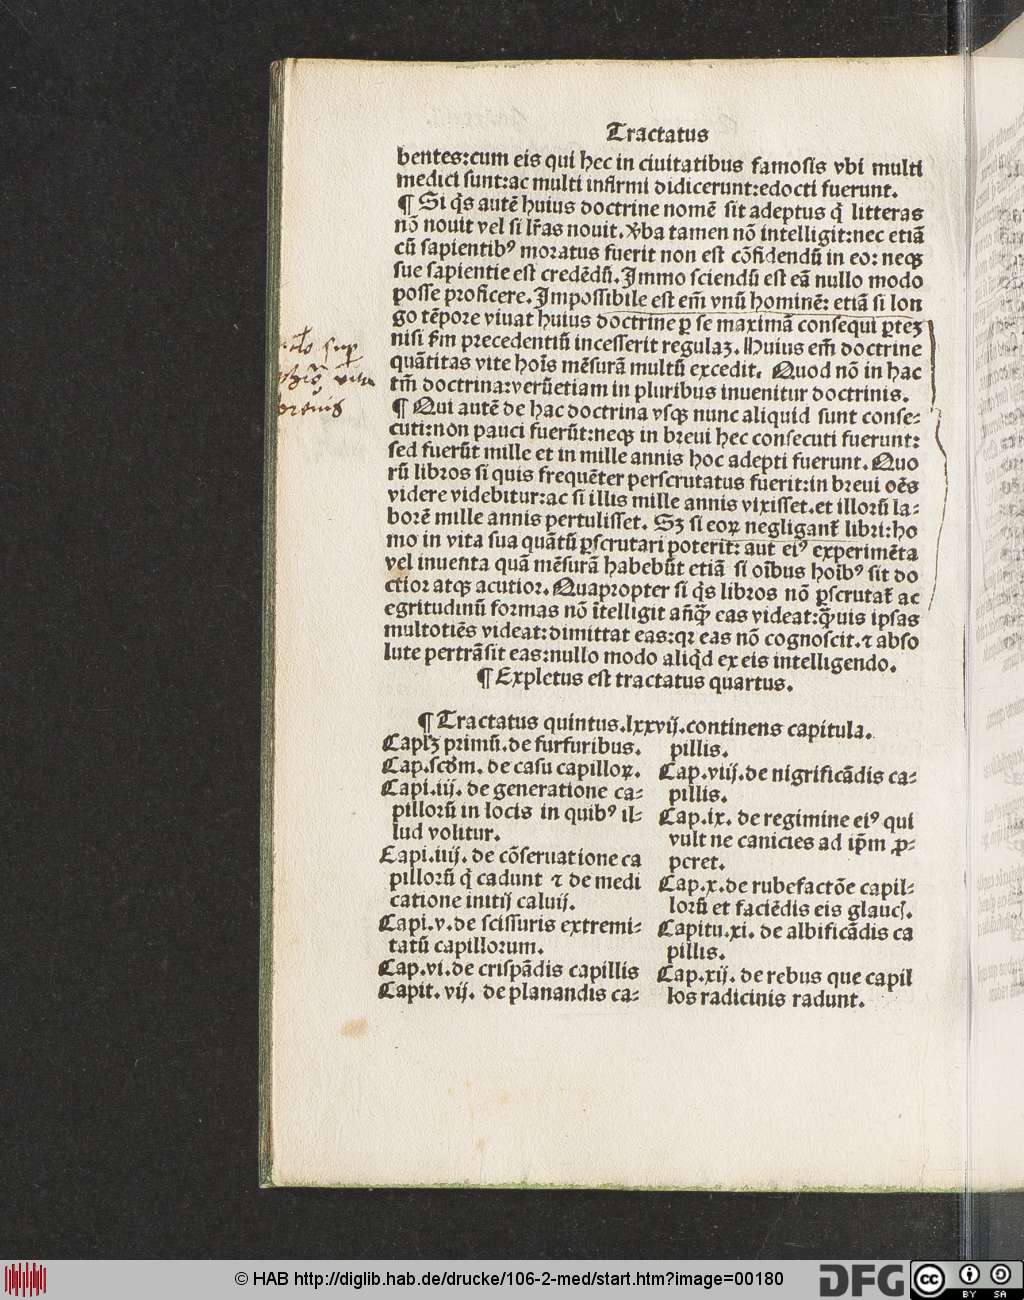 Tractatus
bentes:cum eis qui hec in ciuitatibus famosis vbi multi
medici sunt:ac multi infirmi didicerunt:edocti fuerunt.
¶ Si q̄s autē huius doctrine nomē sit adeptus q̄ litteras
nō nouit vel si lr̄as nouit. v̾ba tamen nō intelligit:nec etiā
cū sapientibꝰ moratus fuerit non est cōfidendū in eo: neqꝫ
sue sapientie est credēdū. Immo sciendū est eā nullo modo
posse proficere. Impossibile est em̄ vnū hominē: etiā si lon
go tēpore viuat huius doctrine ꝑ se maximā consequi ꝑteꝫ
nisi ẜm precedentiū incesserit regulaꝫ. Huius em̄ doctrine
quātitas vite hoīs mēsurā multū excedit. Quod nō in hac
tm̄ doctrina:verūetiam in pluribus inuenitur doctrinis.
¶ Qui autē de hac doctrina vsqꝫ nunc aliquid sunt conse⸗
cuti:non pauci fuerūt:neqꝫ in breui hec consecuti fuerunt:
sed fuerūt mille et in mille annis hoc adepti fuerunt. Quo
rū libros si quis frequēter perscrutatus fuerit:in breui oēs
videre videbitur:ac si illis mille annis vixisset.et illorū la⸗
borē mille annis pertulisset. Sꝫ si eoꝝ negligant᷑ libri:ho
mo in vita sua quātū ꝑscrutari poterit: aut eiꝰ experimēta
vel inuenta quā mēsurā habebūt etiā si oībus hoībꝰ sit do
ctior atqꝫ acutior. Quapropter si q̄s libros nō ꝑscrutat᷑ ac
egritudinū formas nō ītelligit añq̄ꝫ eas videat:q̄ꝫuis ipsas
multotiēs videat:dimittat eas:qꝛ eas nō cognoscit.⁊ abso
lute pertrāsit eas:nullo modo aliq̄d ex eis intelligendo.
¶ Expletus est tractatus quartus.
¶ Tractatus quintus.lxxvij.continens capitula.
Capłꝫ primū.de furfuribus.
Cap.scd̄m. de casu capilloꝝ.
Capi.iij. de generatione ca⸗
pillorū in locis in quibꝰ il⸗
lud volitur.
Capi.iiij. de cōseruatione ca
pillorū q̄ cadunt ⁊ de medi
catione initij caluij.
Capi.v.de scissuris extremi⸗
tatū capillorum.
Cap.vi.de crispādis capillis
Capit. vij. de planandis ca⸗
pillis.
Cap.viij.de nigrificādis ca⸗
pillis.
Cap.ix. de regimine eiꝰ qui
vult ne canicies ad ip̄m ꝓ⸗
peret.
Cap.x.de rubefactōe capil⸗
lorū et faciēdis eis glaucꝭ.
Capitu.xi. de albificādis ca
pillis.
Cap.xij. de rebus que capil
los radicinis radunt.
sup
vita
breuis
© HAB http://diglib.hab.de/drucke/106-2-med/start.htm?image=00180
DFG
cc
BY SA